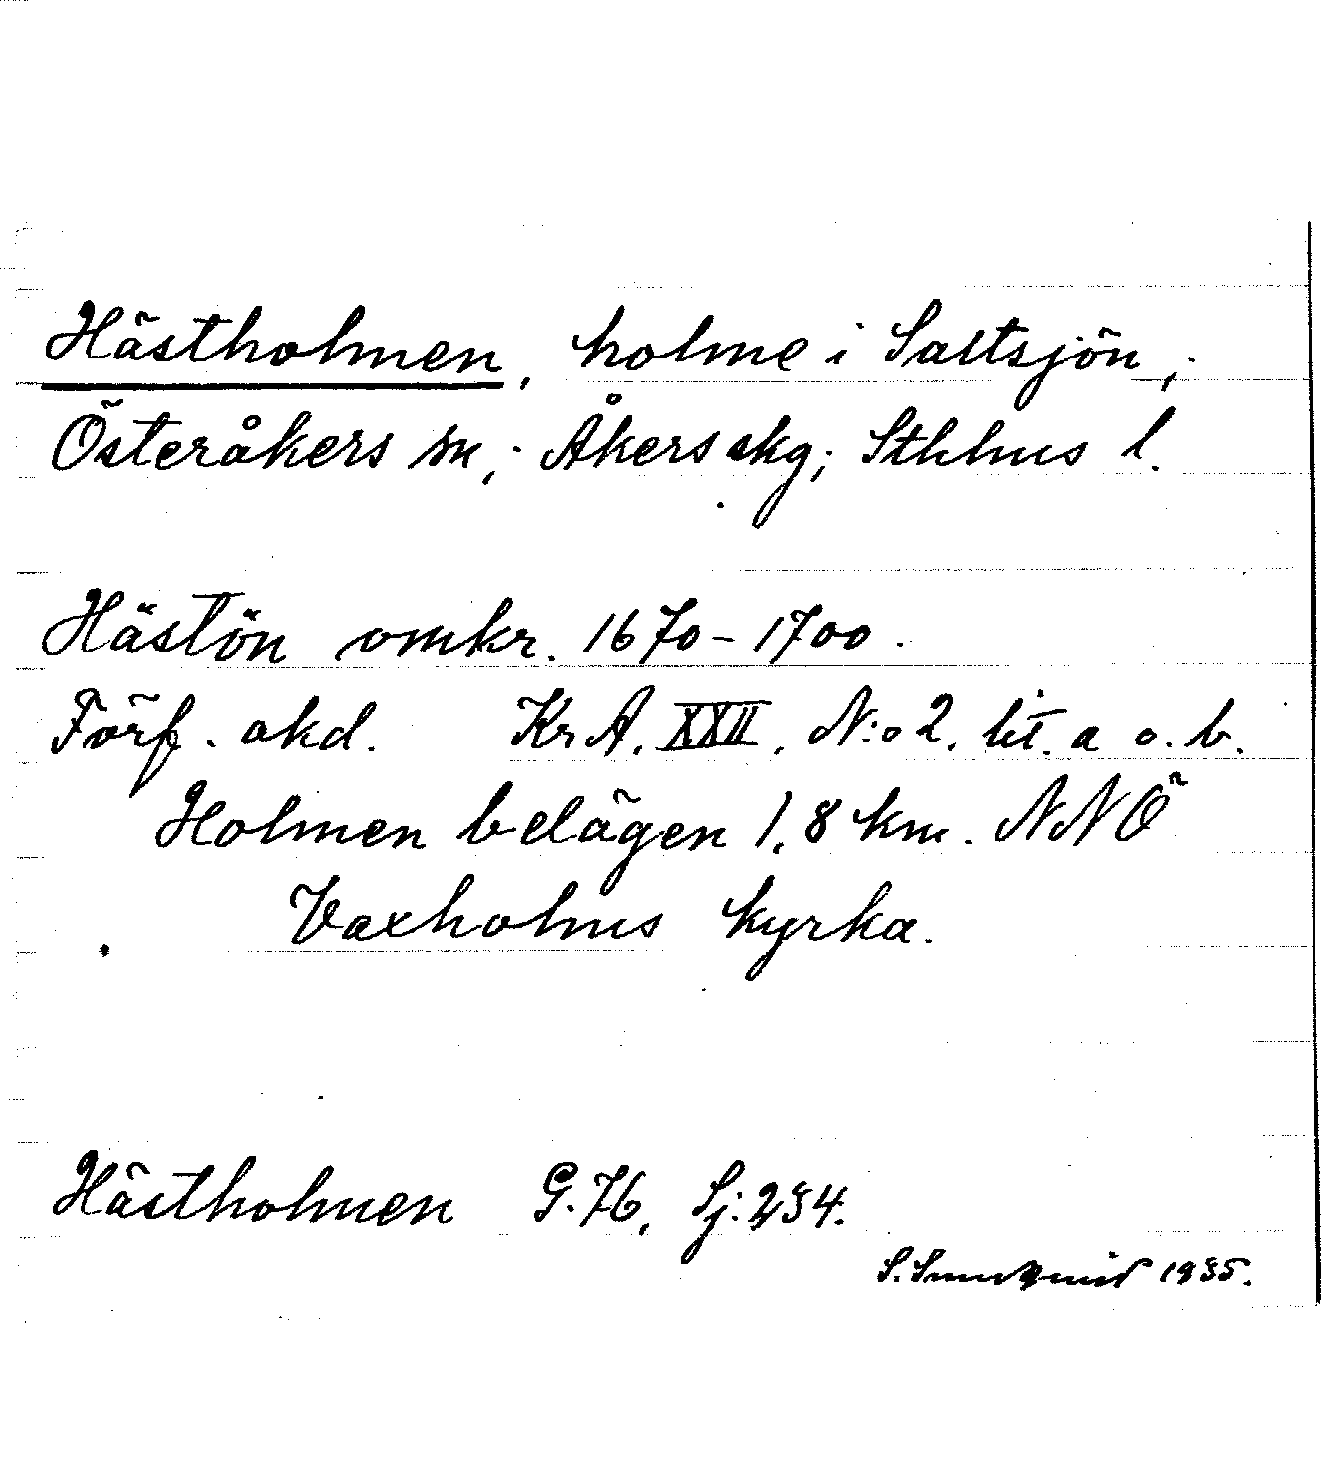 Hästholmen, holme i Saltsjön,
Österåkers sn, Åkers skg; Sthlms l.
Hästön omkr. 1670-1700.
Förf. okd. Kr A. XXII, N:o 2. lit. a o. b.
Holmen belägen 1,8 km. NNÖ
Vaxholms kyrka.
Hästholmen G. 76, Sj: 234.
S. 1935.